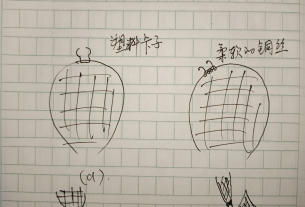 塑料卡子
柔软的铜丝
(a).